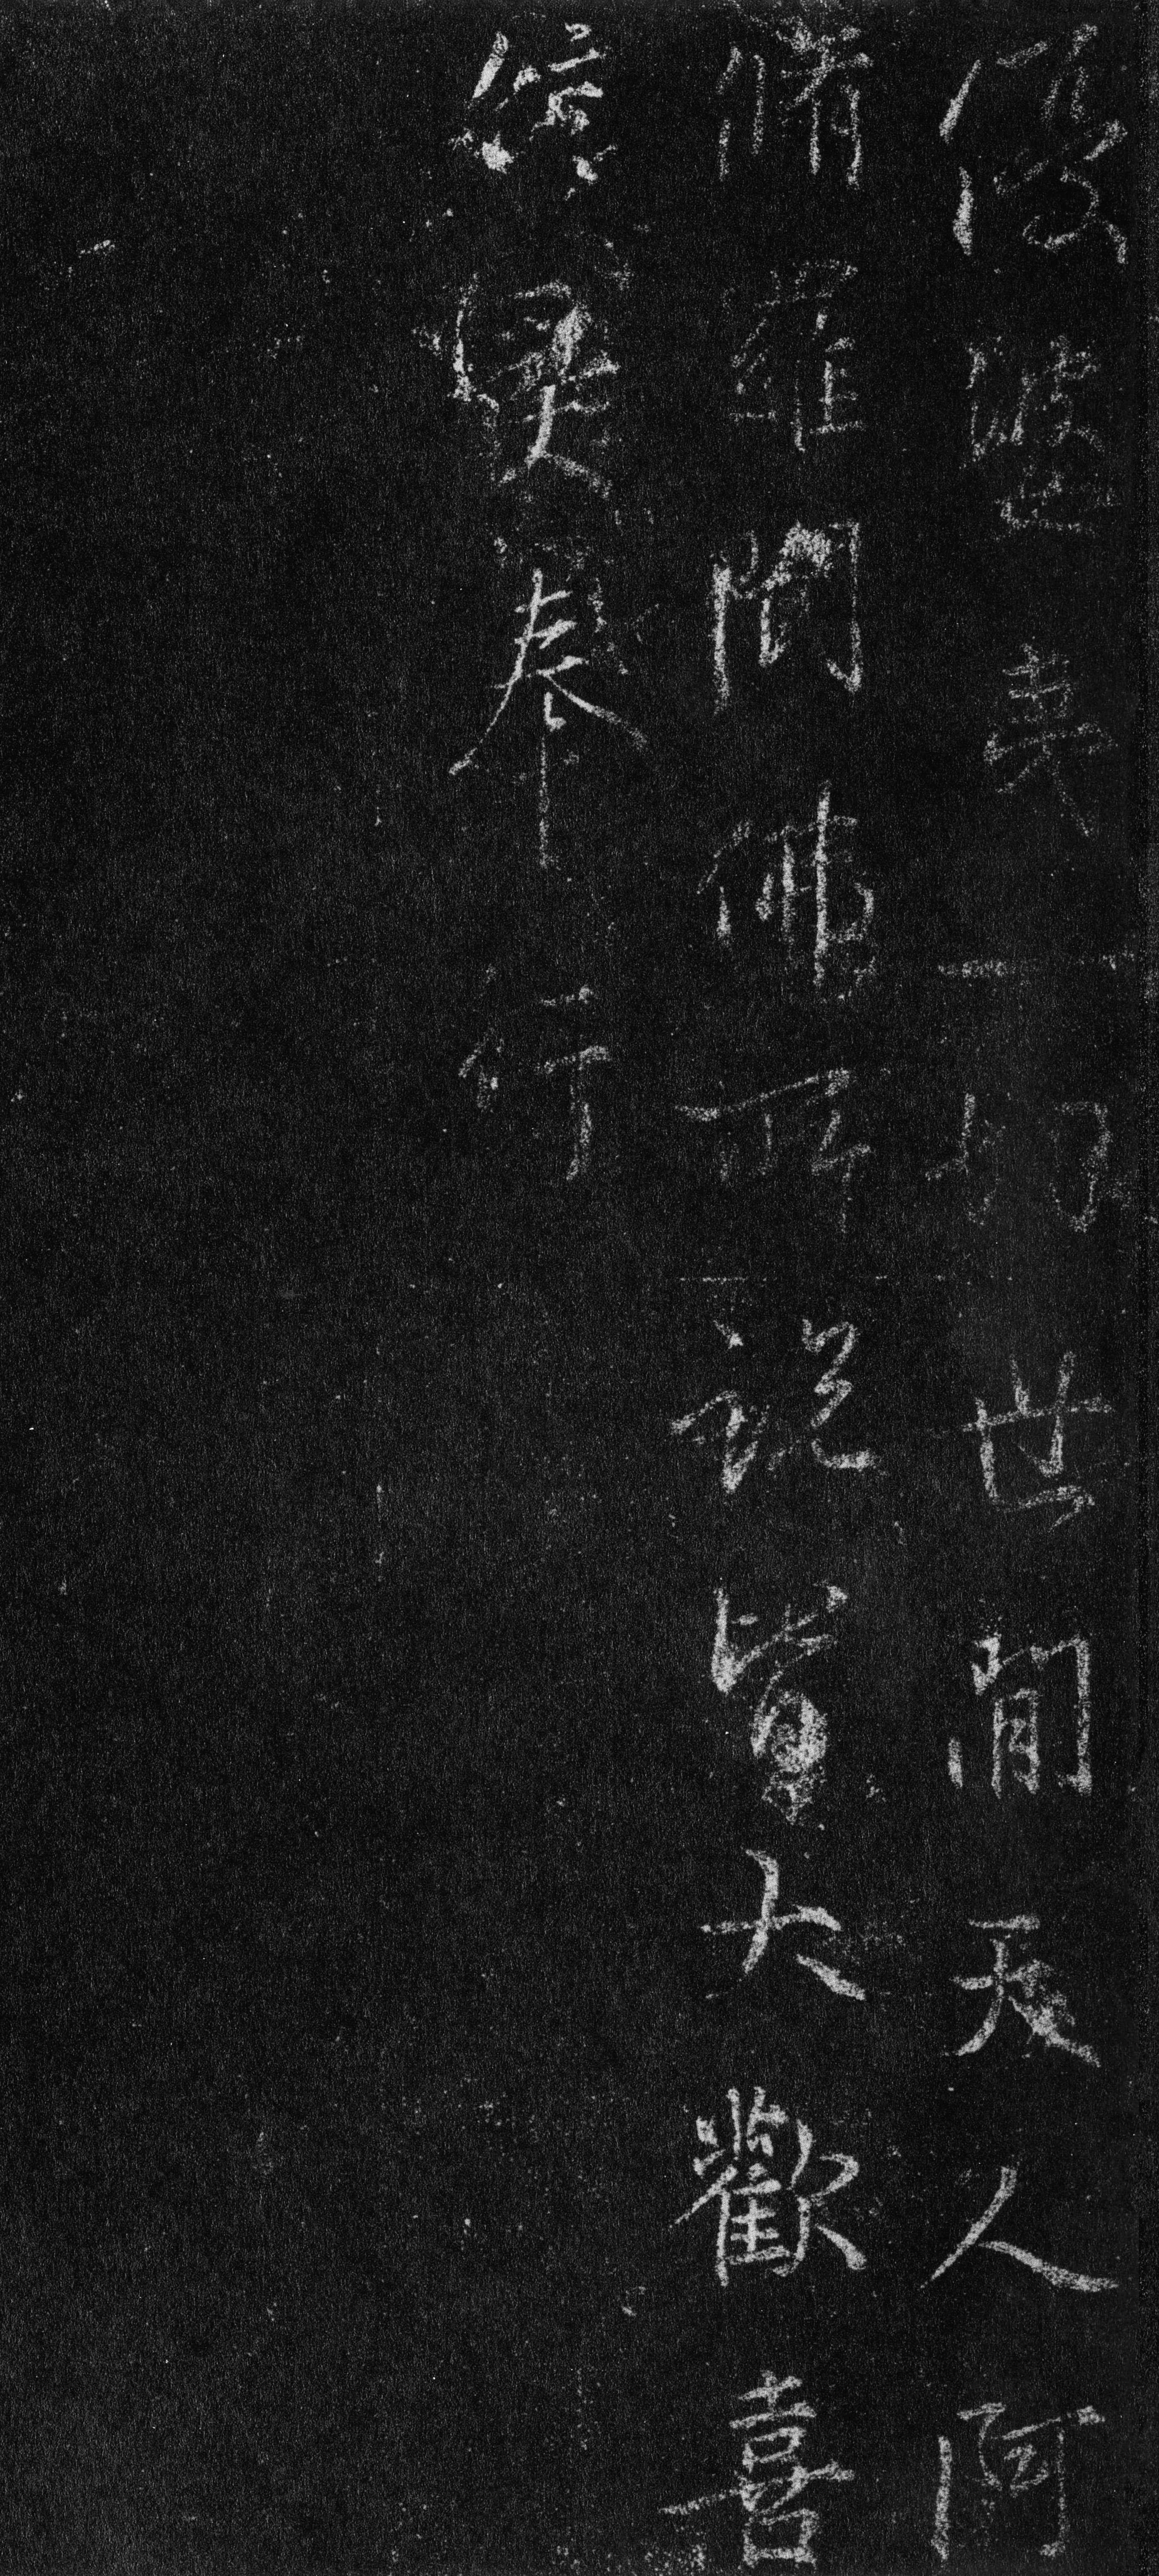 優婆夷一切世間天人阿
脩羅聞佛所説皆大歡喜
信受奉行